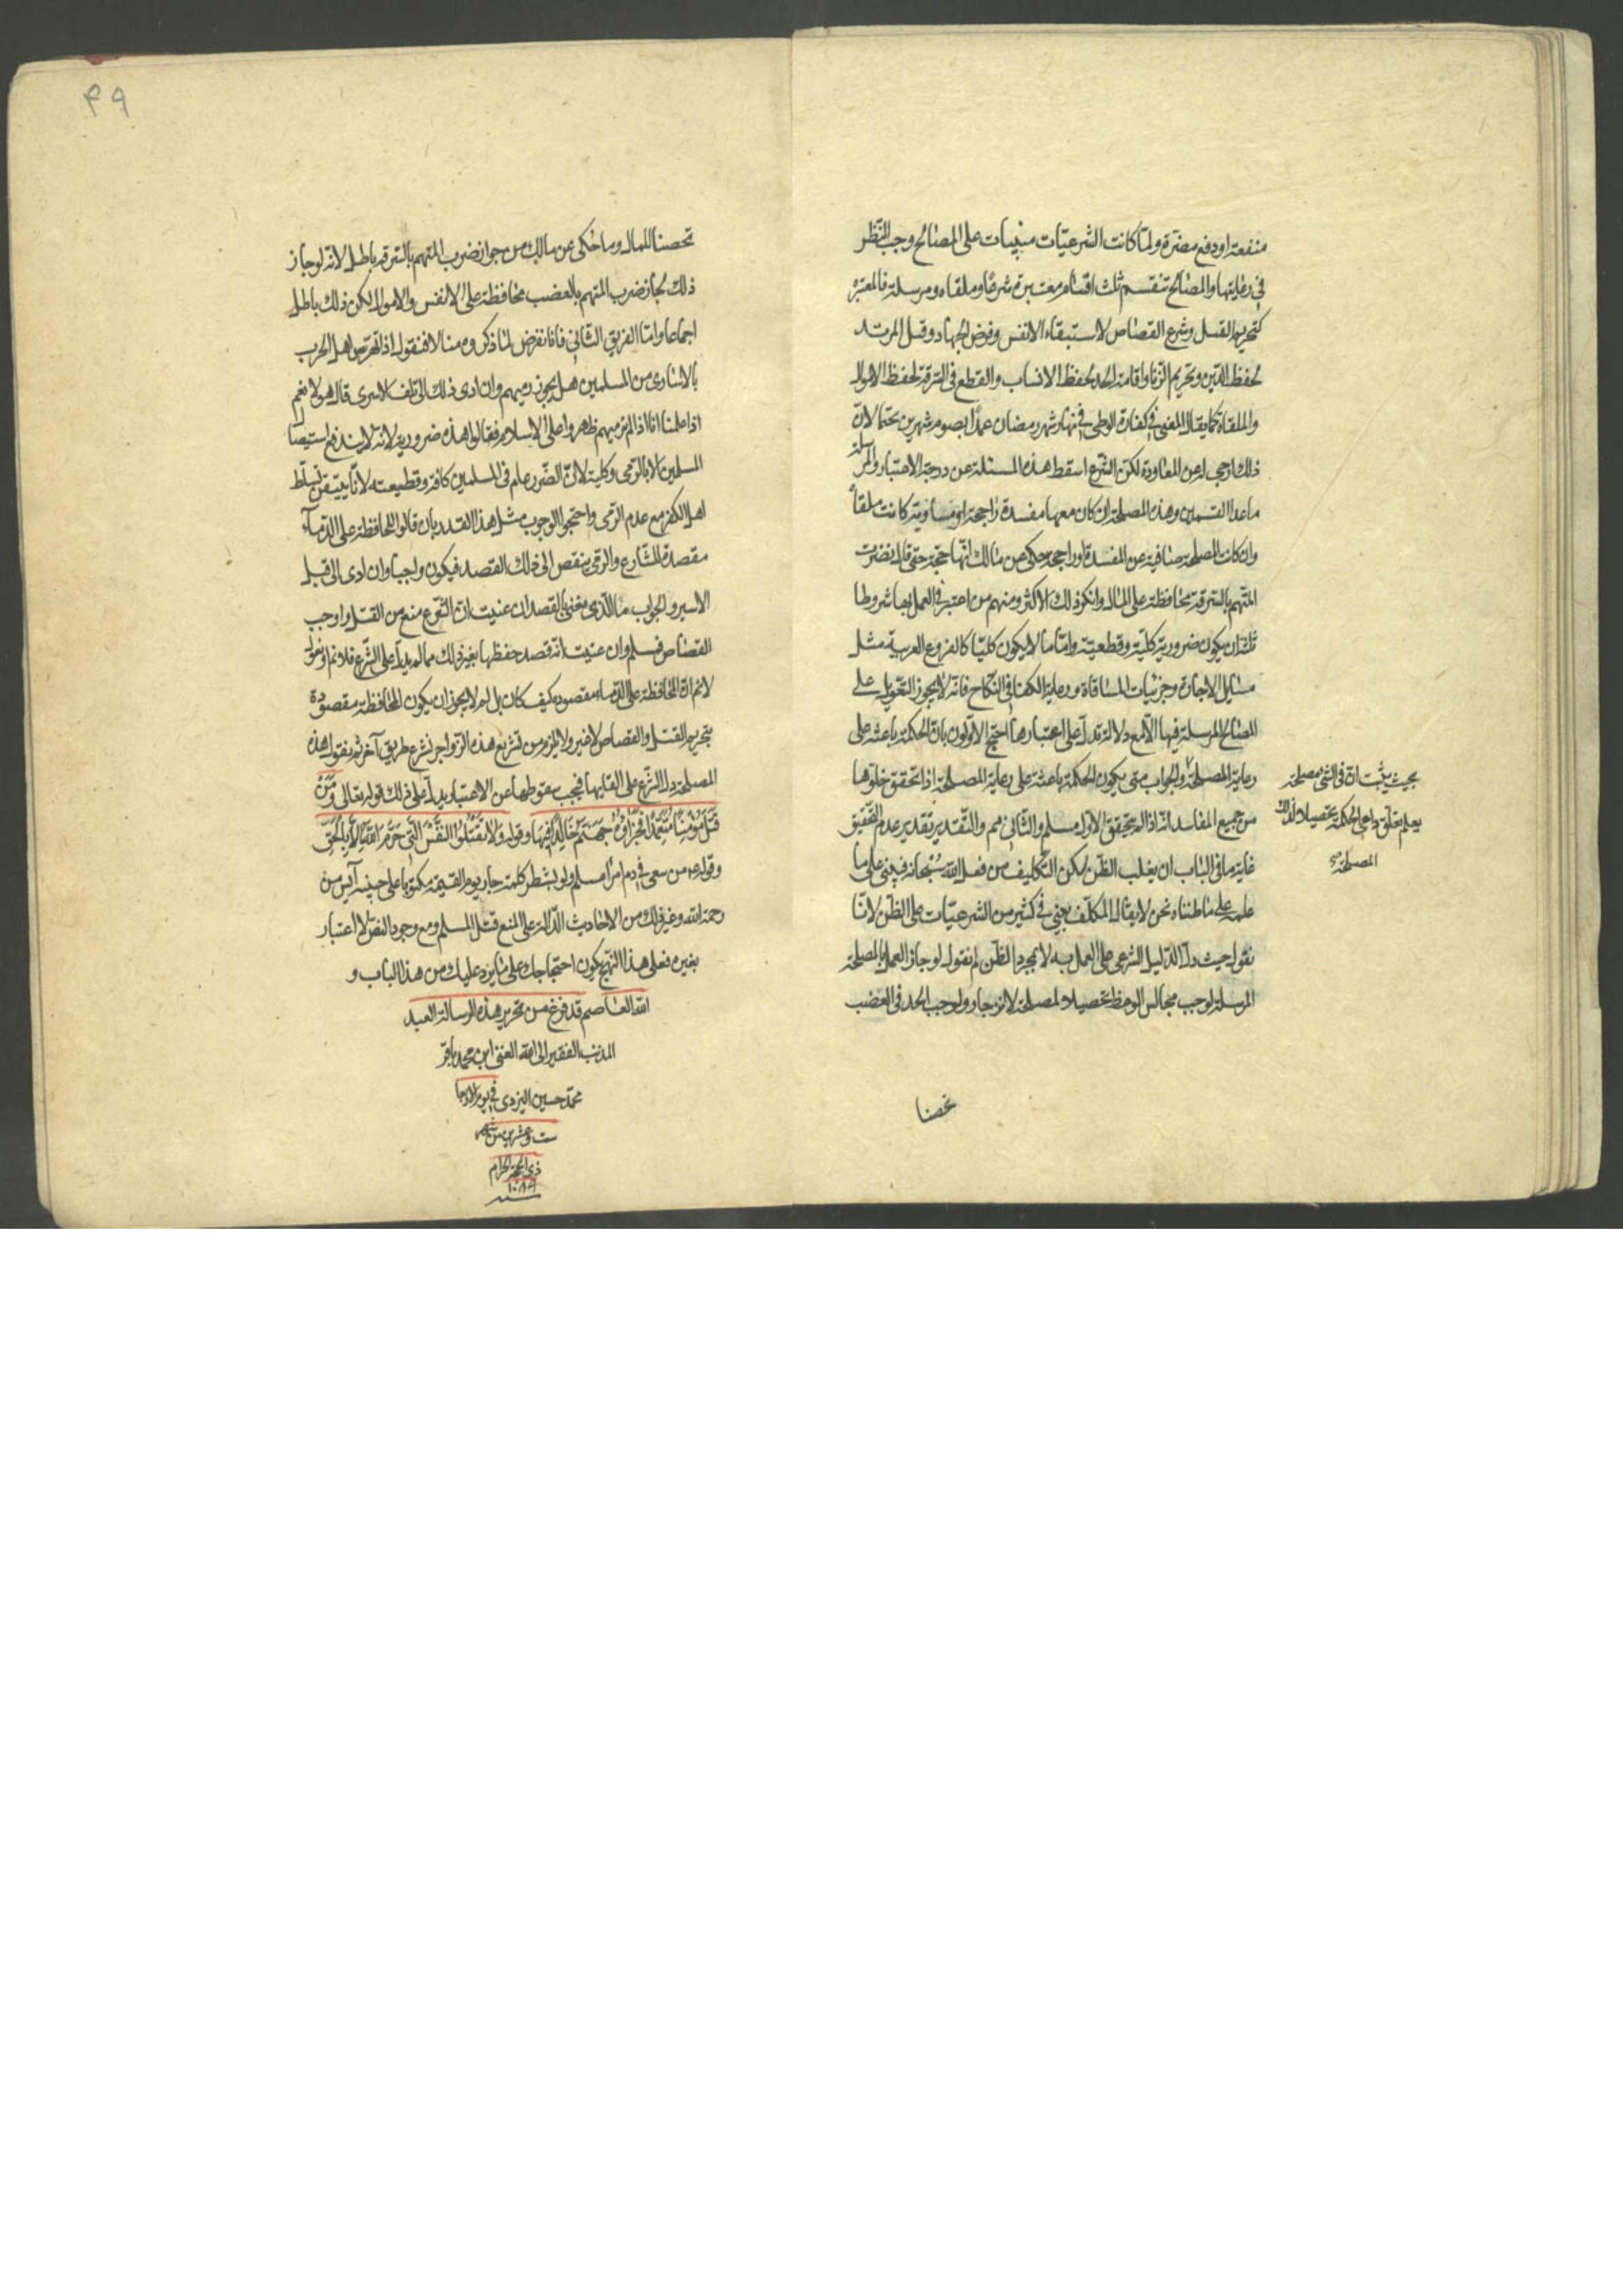 منفعة او دفع مضرة ولما كانت الشرعيّات مبنيات على المصالح وجب النّظر
في رعايتها والمصالح تنقسم ثلث اقسام معتبرة شرعًا وملقاه ومرسلة فالمعتبره
كتحريم القتل وشرع القصاص لاستبقاء الانفس وفرض الجهاد وقتل المرتد
لحفظ الدّين وتحريم الزنا واقامة الحد لحفظ الانساب والقطع في السّرقة لحفظ الاموال
والملقاة كما يقال المغني في كفارة الوطى في نهار شهر رمضان عمدًا بصوم شهرين حتما لانّ
ذلك ازجر له عن المعاودة لكن الشّرع اسقط هذه المسئلة عن درجة الاعتبار والمرسلة
ما عدا القسمين وهذه المصلحة ان كان معها مفسدة راجحة او مساوية كانت ملقاً
وان كانت المصلحة صافية عن المفسدة او راجحة حكى عن مالك انّها حجة حتى قال بضرب
المتّهم بالسّرقة محافظة على المال وانكر ذلك الاكثر ومنهم من اعتبر في العمل بها شروطا
ثلثة ان يكون ضرورية كليّة وقطعيّة وامّا ما لا يكون كليّا كالفروع الغريبة مثل
مسايل الاجارة وجزئيات المساقاة ورعاية الكفا في النّكاح فانّه لا يجوز التّعويل على
المصالح المرسلة فيها الّا مع دلالة تدل على اعتبارها احتج الاوّلون بانّ الحكمة باعثة على
رعاية المصلحة والجواب متى يكون الحكمة باعثة على رعاية المصلحة اذا تحقق خلوّها
من جميع المفاسد ام اذا لم يتحقق الاول مسلم والثاني مم والتّقدير تقدير عدم التّحقيق
غاية ما في الباب ان يغلب الظّن لكن التّكليف من فعل الله سبحانه فيبنى على ما
علمه على ما ظنناه نحن لا يقال المكلّف يبني في كثير من الشرعيّات على الظّن لانّا
نقول حيث دلّ الدّليل الشرعي على العمل به لا بمجرد الظّن ثم نقول لو جاز العمل بالمصلحة
المرسلة لوجب مجالس الوعظ تحصيلا لمصلحة الانزجار ولوجب الحد في الغصب
بحيث يثبت انّ في الشئ مصلحة
يعلم تعلق داعي الحكمة بتحصيله لتلك
المصلحة
تحصنا
٤٩
تحصنا للمال وما حكى عن مالك من جواز ضرب المتهم بالسّرقة باطل لانّه لو جاز
ذلك لجاز ضرب المتهم بالغصب محافظة على الانفس والاموال لكن ذلك باطل
اجماعا وامّا الفريق الثّاني فانا نفرض لما ذكروه مثالا فنقول اذا تترس اهل الحرب
بالاسارى من المسلمين هل يجوز رميهم وان ادى ذلك الى تلف الاسرى قال هؤلاء نعم
اذا علمنا انّا اذا لم نرميهم ظهروا على الاسلام فقالوا هذه ضرورية لانّه لا يندفع استيصال
المسلمين الا بالرّمى وكلية لانّ الضّرر عام في المسلمين كافة وقطيعته لانّا نتيقن تسلّط
اهل الكفر مع عدم الرّمى واحتجوا لوجوب مثل هذا القدر بان قالوا المحافظة على الدّماء
مقصدة للشّارع والرّمى يفضى الى ذلك المقصد فيكون واجبا وان ادى الى قتل
الاسير والجواب ما الّذى يعني بالقصد ان عنيت انّ الشّرع منع من القتل واوجب
القصاص فمسلم وان عنيت انّه قصد حفظها بغير ذلك مما لم يدلّ على الشّرع فلا ثم او نقول
لا نم انّ المحافظة على الدّماء مقصوده كيف كان بل لم لا يجوز ان يكون المحافظة مقصودة
بتحريم القتل والقصاص لا غير ولا يلزم من تشريع هذه الزّواجر لشرع طريق آخر ثم نقول هذه
المصلحة دلّ الشّرع على القايها فيجب سقوطها عن الاعتبار يدلّ على ذلك قوله تعالى وَمَنْ
قَتَلَ مُؤْمِنًا مُتَعَمِّدًا فَجَزَاؤُهُ جَهَنَّمُ خَالِدًا فِيهَا وقوله وَلَا يَقْتُلُونَ النَّفْسَ الَّتِي حَرَّمَ اللهُ إِلَّا بِالْحَقِّ
وقوله ع من سعى في دم امرأ مسلم ولو بشطر كلمة جاء يوم القيمة مكتوبا على جبينه آيس من
رحمة الله وغير ذلك من الاحاديث الدّالة على المنع قتل المسلم ومع وجود النصّ لا اعتبار
بغيره فعلى هذا النّهج يكون احتجاجك على ما يرد عليك من هذا الباب و
الله العاصم قد فرغ من تحرير هذه الرسالة العبد
المذنب الفقير الى الله الغنى ابن محمد باقر
محمّد حسين اليزدى في يوم الاربعا
ست وعشرين من شهر
ذى الحجة الحرام
سنه ١٠٨٩